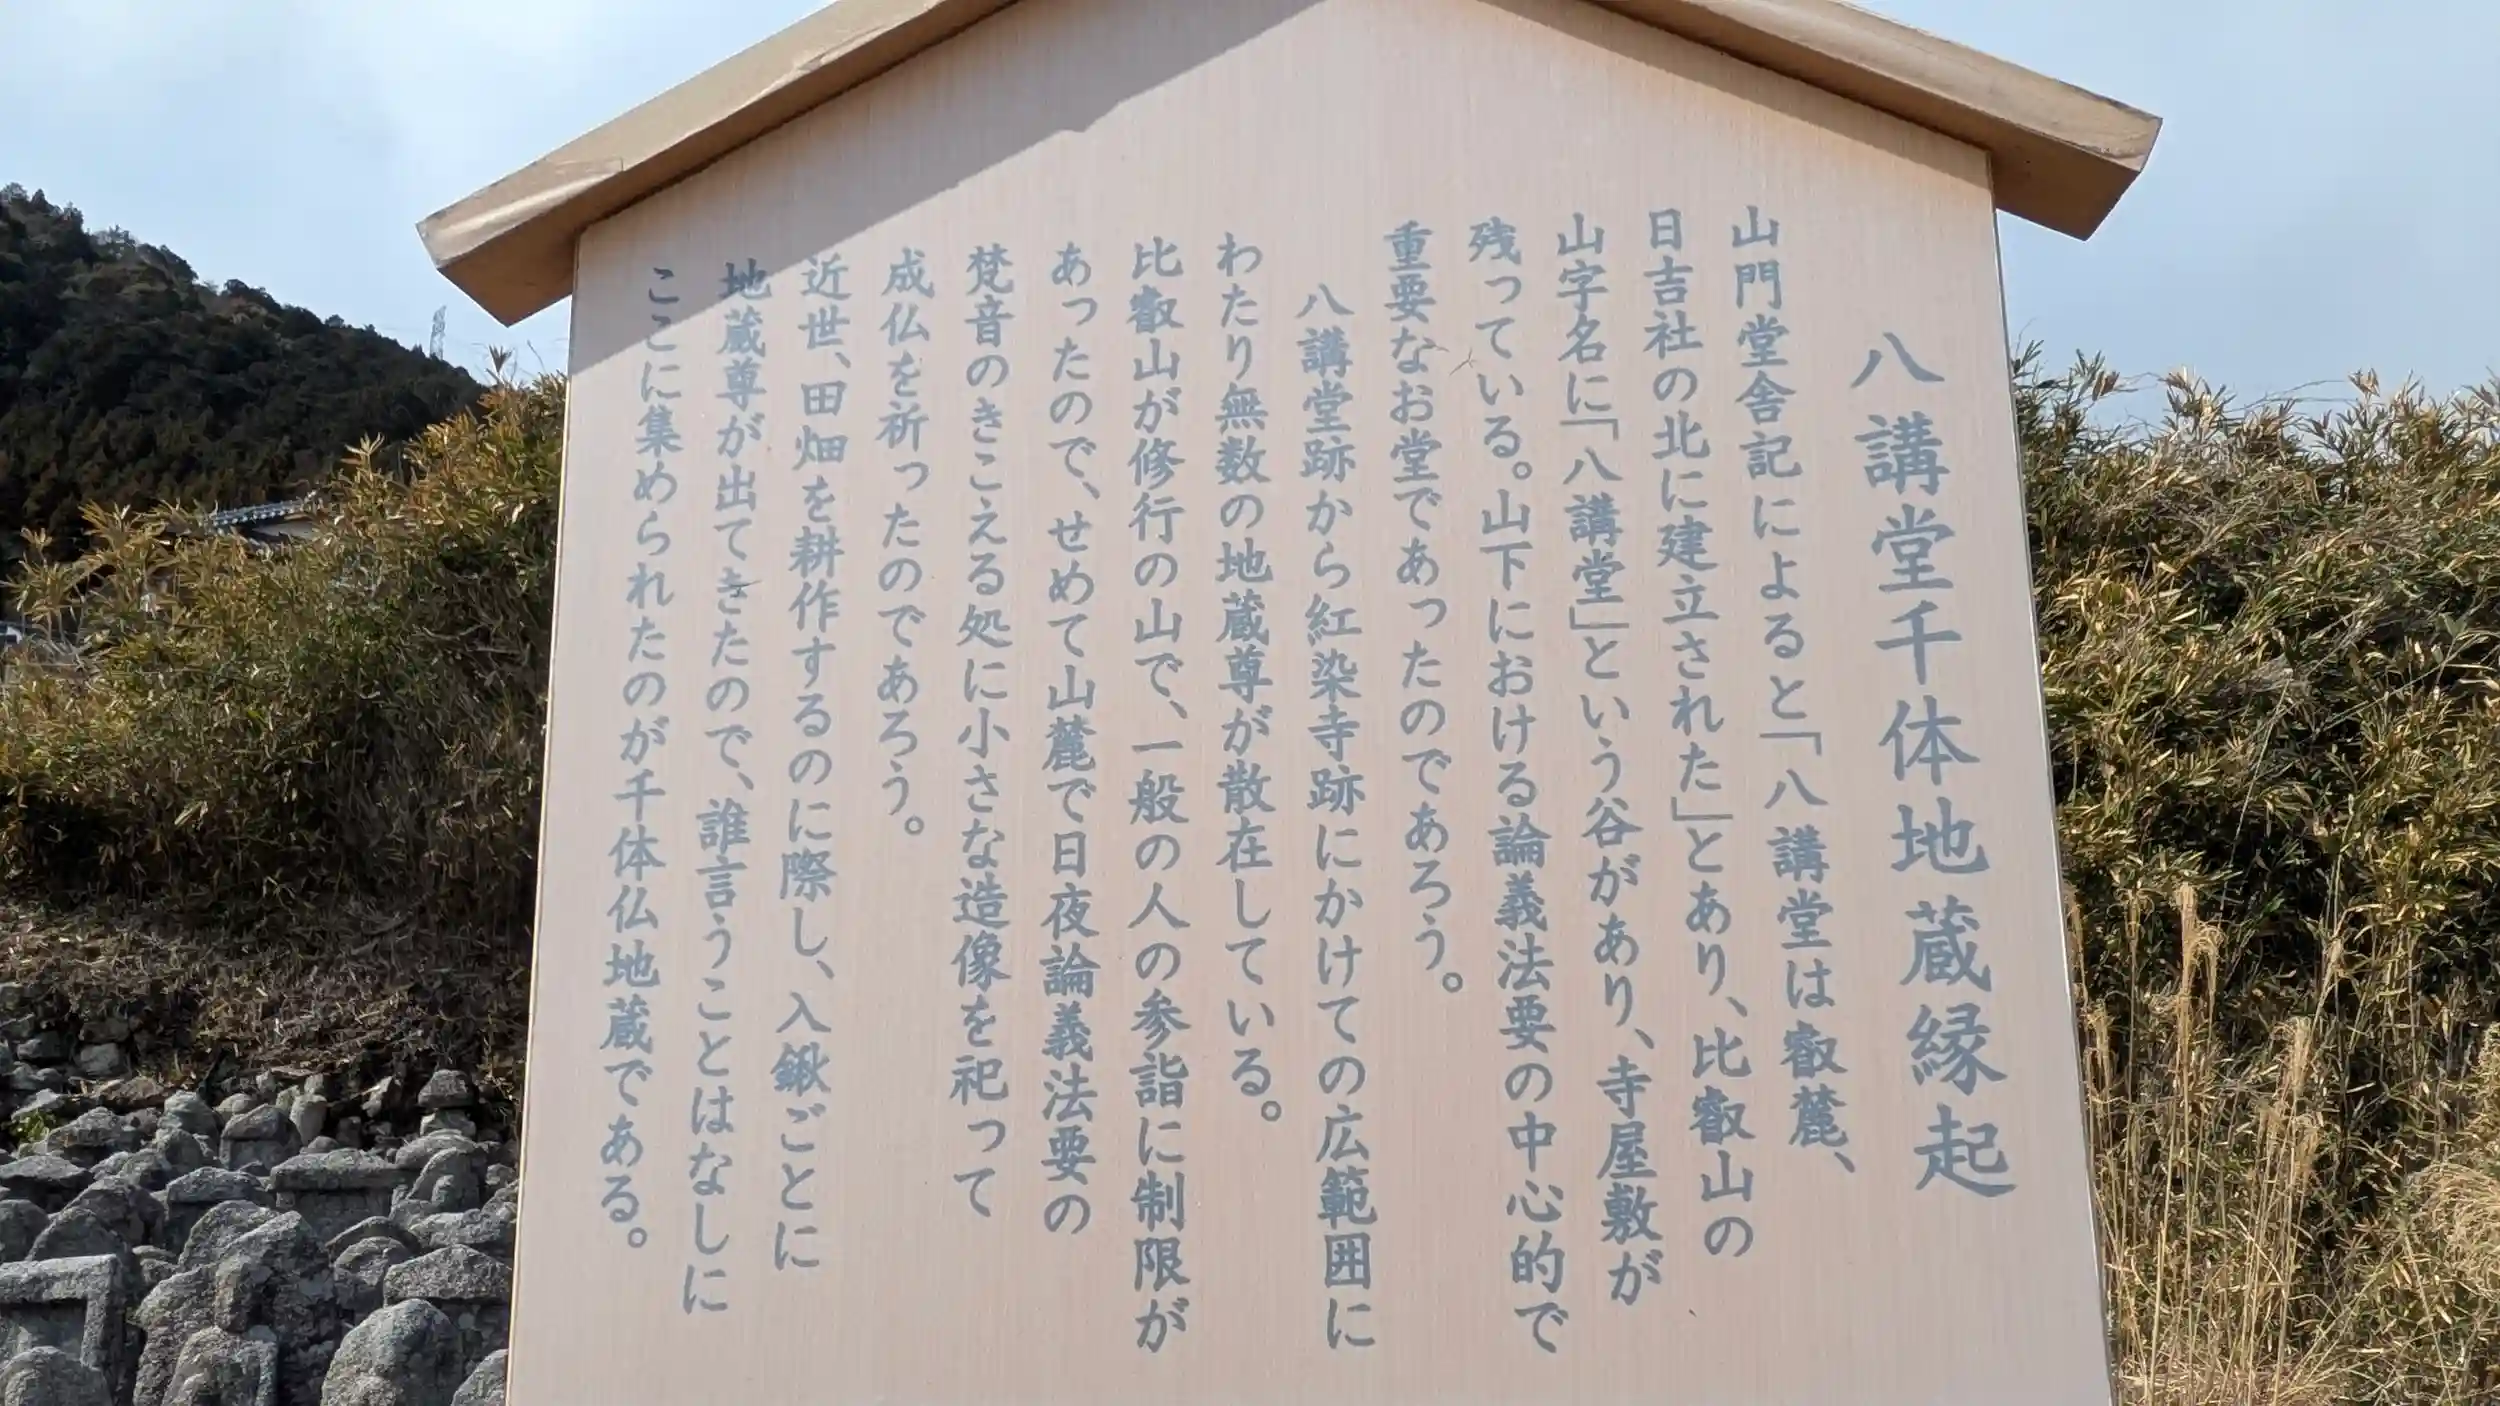 八講堂千体地蔵縁起
山門堂舎記によると「八講堂は叡麓、
日吉社の北に建立された」とあり、比叡山の
山字名に「八講堂」という谷があり、寺屋敷が
残っている。山下における論義法要の中心的で
重要なお堂であったのであろう。
八講堂跡から紅染寺跡にかけての広範囲に
わたり無数の地蔵尊が散在している。
比叡山が修行の山で、一般の人の参詣に制限が
あったので、せめて山麓で日夜論義法要の
梵音のきこえる処に小さな造像を祀って
成仏を祈ったのであろう。
近世、田畑を耕作するのに際し、入鍬ごとに
地蔵尊が出てきたので、誰言うことはなしに
ここに集められたのが千体仏地蔵である。